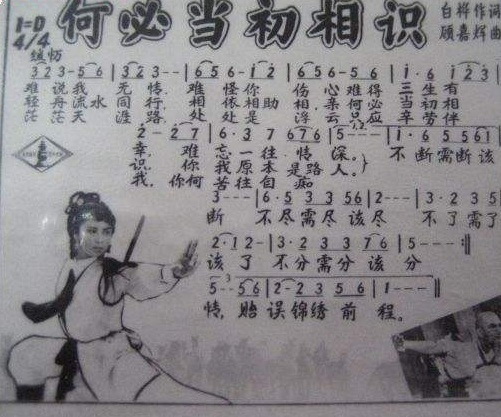 何必当初相识
1=D
4/4
白桦作词
顾嘉辉曲
缅怀
3 2 3 - 5 6 | 3 2 3 - - | 6 5 6 - i 2 | 6 5 6 - 5 6 | i · 6 i 2 3 |
难说我 无情, 难怪你 伤心难得 三生有
轻舟流水 同行, 相依相助 相亲何必 当初相
茫茫天 涯路, 处处是 浮云只应 辛劳伴
2 - 2 7 | 6 · 3 7 6 7 6 | 5 - - - | 1 · 6 5 5 6 1 |
幸, 难忘一往情深。 不断需断该
识, 你我原本是路人。
我, 你何苦往自痴
3 - - - | 6 · 5 3 3 5 6 | 2 - - - | 3 · 2 3 5
断 不尽需尽该尽 不了需了
2 · 1 2 - | 3 · 2 3 3 7 6 | 5 - - -
该了 不分需分该分
5 - - 5 6 | 2 - 2 3 5 6 | 1 - - -
情, 贻误锦绣前程。